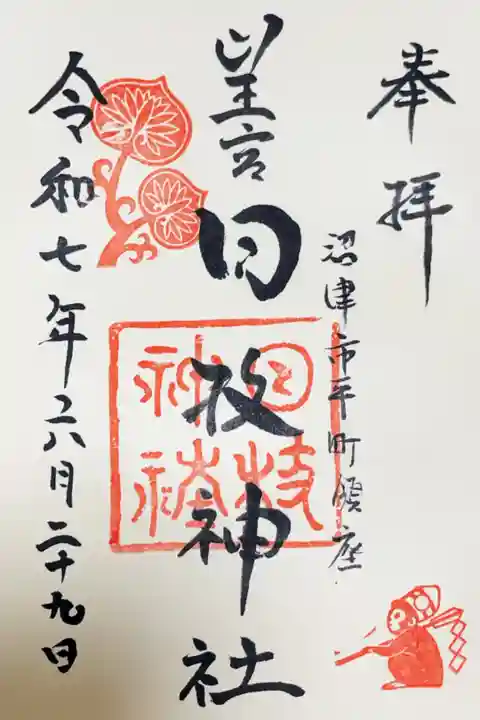 奉拝
沼津市平町鎮座
山王宮
日枝神社
日枝神社
令和七年六月二十九日